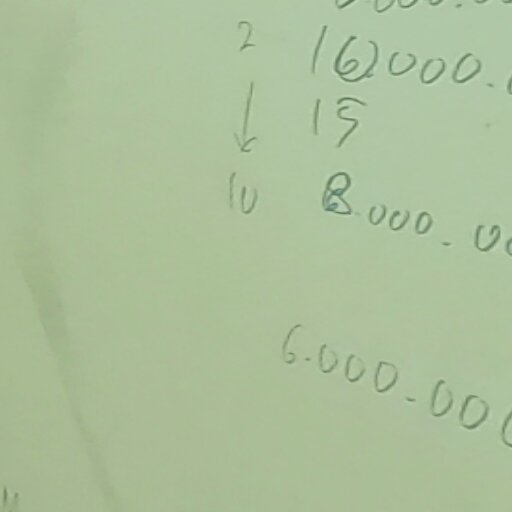 2 16.000.
↓ 15
10 8.000.00
6.000.000